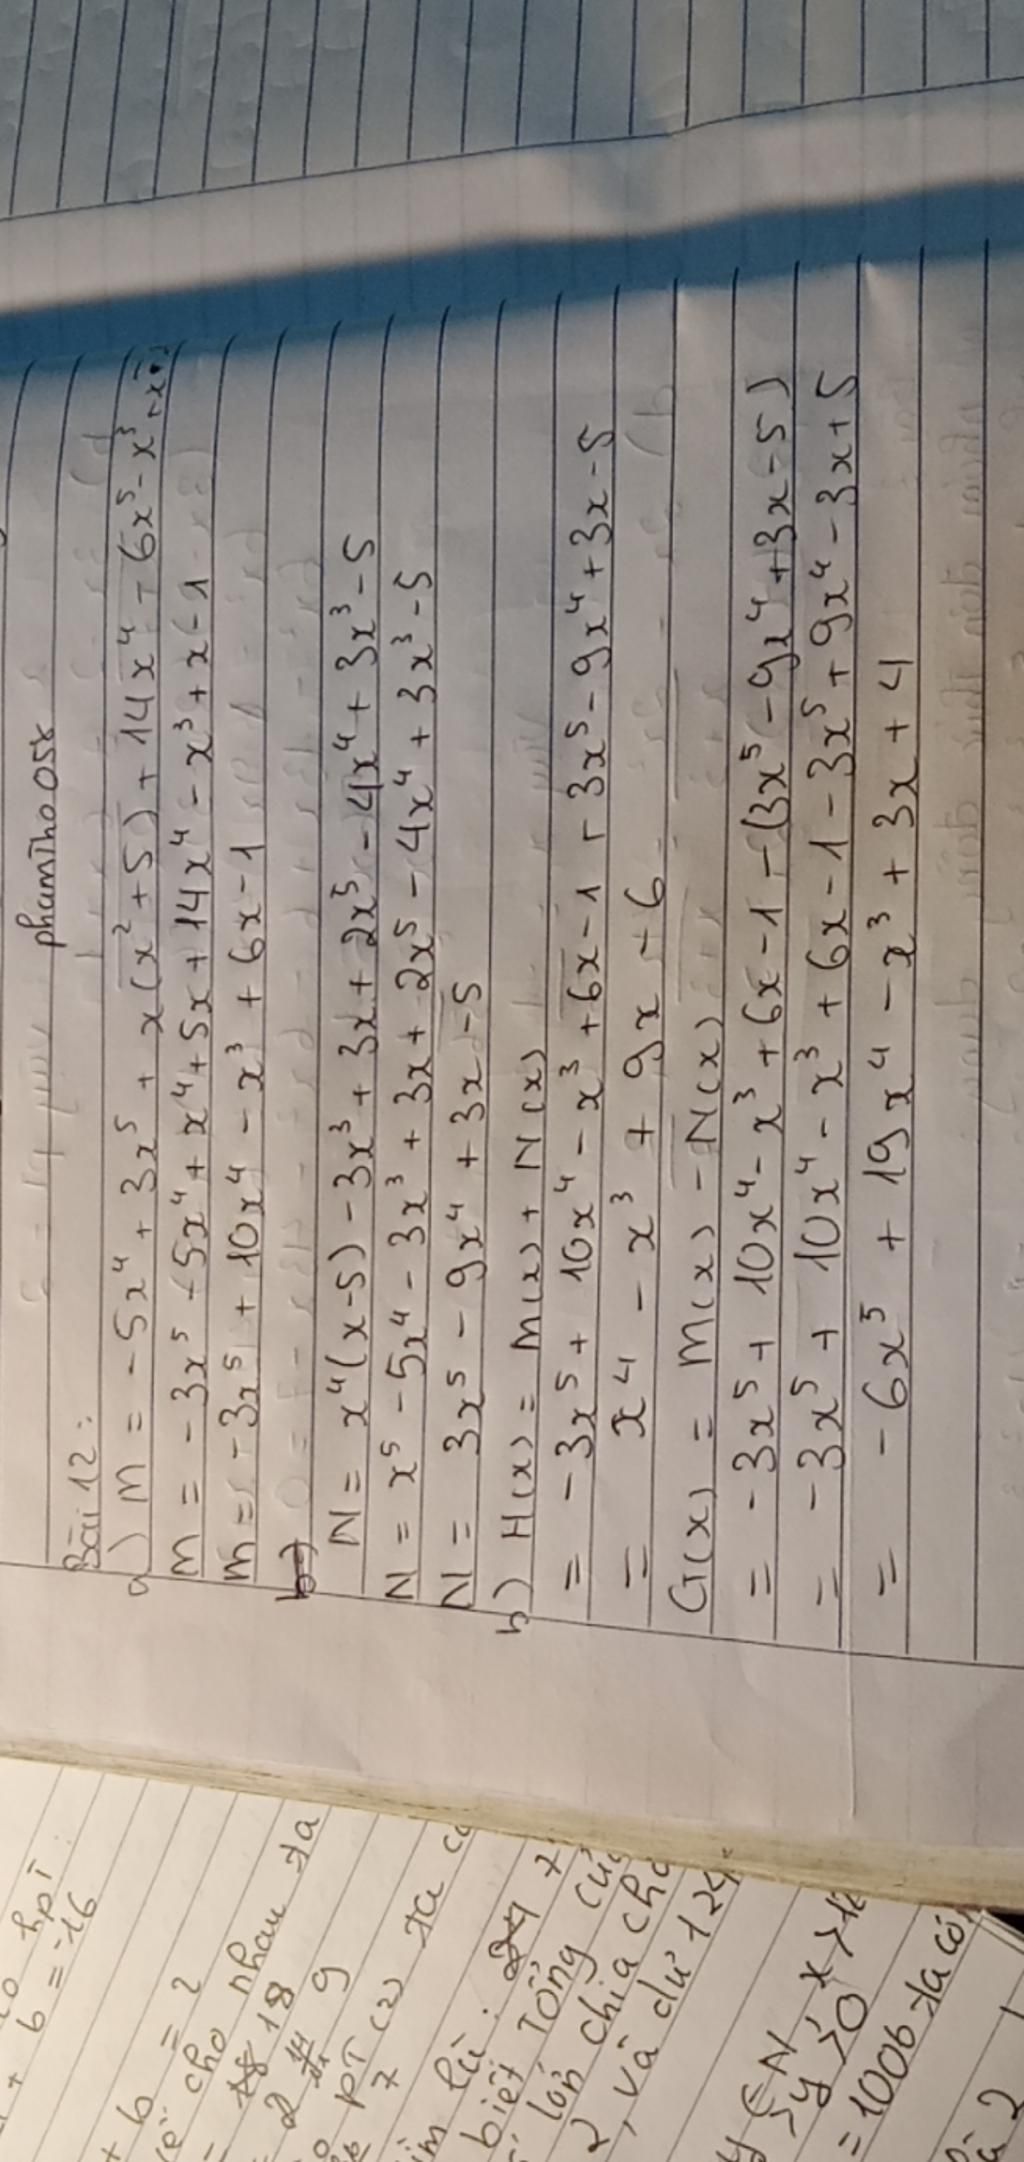 phamtho058
Bài 12:
a) M = -5x⁴ + 3x⁵ + x(x² + 5) + 14x⁴ - 6x⁵ - x³ + x - 1
M = -3x⁵ - 5x⁴ + x⁴ + 5x + 14x⁴ - x³ + x - 1
M = -3x⁵ + 10x⁴ - x³ + 6x - 1
b)
N = x⁴(x-5) - 3x³ + 3x + 2x⁵ - 4x⁴ + 3x³ - 5
N = x⁵ - 5x⁴ - 3x³ + 3x + 2x⁵ - 4x⁴ + 3x³ - 5
N = 3x⁵ - 9x⁴ + 3x - 5
b) H(x) = M(x) + N(x)
= -3x⁵ + 10x⁴ - x³ + 6x - 1 + 3x⁵ - 9x⁴ + 3x - 5
= x⁴ - x³ + 9x - 6
G(x) = M(x) - N(x)
= -3x⁵ + 10x⁴ - x³ + 6x - 1 - (3x⁵ - 9x⁴ + 3x - 5)
= -3x⁵ + 10x⁴ - x³ + 6x - 1 - 3x⁵ + 9x⁴ - 3x + 5
= -6x⁵ + 19x⁴ - x³ + 3x + 4
hpT
b = -16
+ b = 2
cho nhau ta
18
9
PT (2) ta
7
biết tổng
lớn chia cho
2, và dư 124
y ∈ N x > 12
y > 0
= 1006 ta có
2